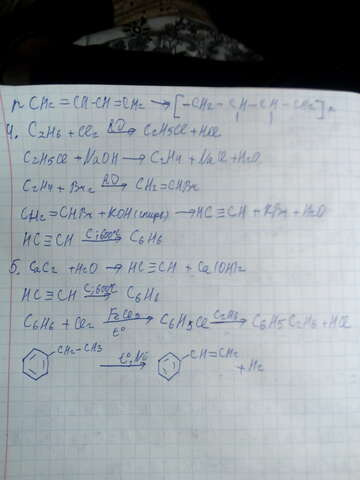 n CH₂ = CH-CH=CH₂ → [-CH₂ - CH - CH - CH₂]n
4. C₂H₆ + Cl₂ → C₂H₅Cl + HCl
C₂H₅Cl + NaOH → C₂H₄ + NaCl + H₂O
C₂H₄ + Br₂ → CH₂=CHBr
CH₂=CHBr + KOH (спирт) → HC≡CH + KBr + H₂O
HC≡CH C, 600°C → C₆H₆
5. CaC₂ + H₂O → HC≡CH + Ca(OH)₂
HC≡CH C, 600°C → C₆H₆
C₆H₆ + Cl₂ FeCl₃ t° → C₆H₅Cl C₂H₆ → C₆H₅C₂H₅ + HCl
CH₂-CH₃ t°, Ni → CH=CH₂ + H₂